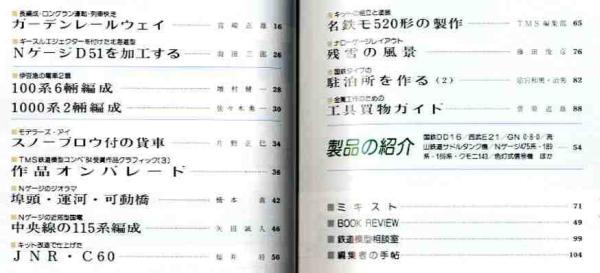 長編成・ロングラン運転・列車快走
ガーデンレールウェイ 宮崎正雄 16
ギースルエジェクターを付けた北海道型
NゲージD51を加工する 26
伊豆急の電車2題
100系6輛編成 増村健一 28
1000系2輛編成 30
モデラーズ・アイ
スノープロウ付の貨車 片野正巳 34
TMS鉄道模型コンペ'84受賞作品グラフィック(3)
作品オンパレード 36
Nゲージのジオラマ
埠頭・運河・可動橋 橋本真 42
Nゲージの近郊型国電
中央線の115系編成 矢田誠人 46
キット改造で仕上げた
JNR・C60 桜井 50
キットの組立と塗装
名鉄モ520形の製作 TMS編集部 65
ナローゲージレイアウト
残雪の風景 藤田俊彦 76
国鉄タイプの
駐泊所を作る(2) 82
金属工作のための
工具買物ガイド 菅原道雄 88
製品の紹介
国鉄DD16/西武E21/GN 0-8-0/秀
山鉄道サドルタンク機/Nゲージ475系・189
系・165系・クモニ143/色灯式信号機 ほか
54
ミキスト 71
BOOK REVIEW 49
鉄道模型相談室 99
編集者の手帖 104